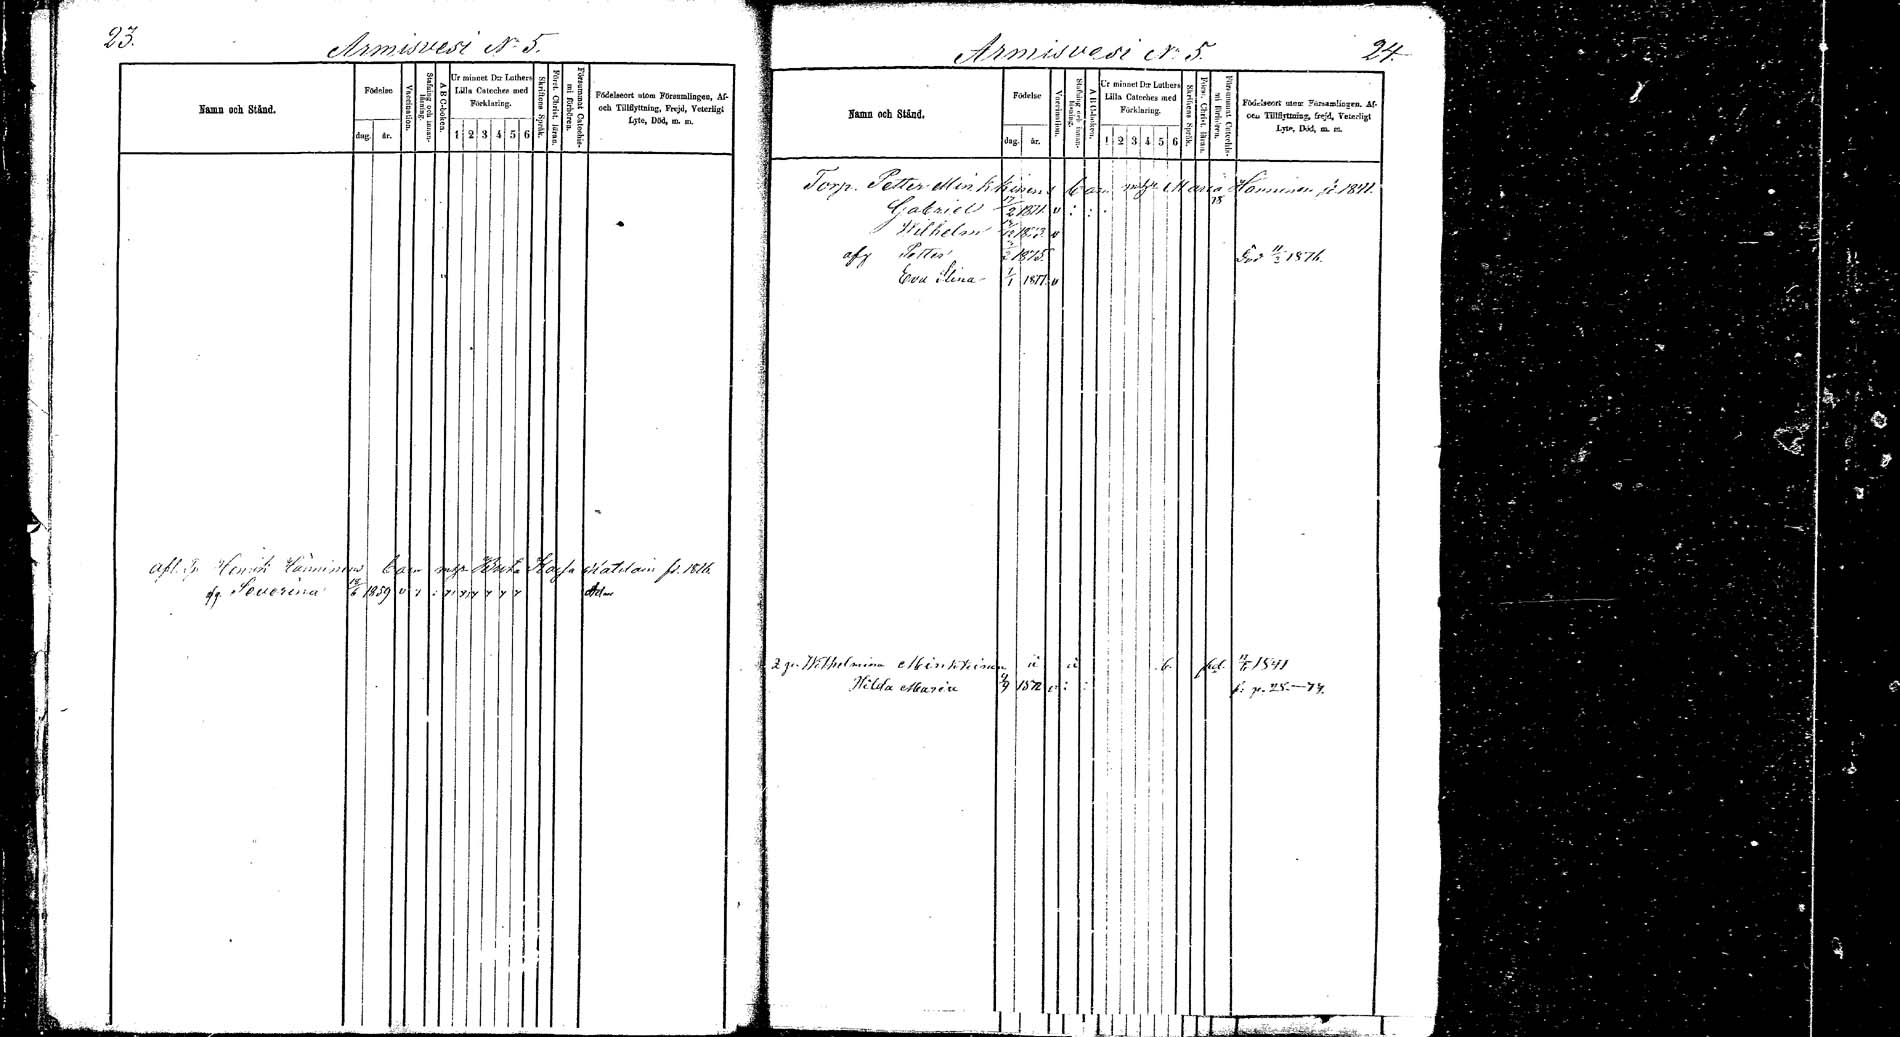 23.
Armisvesi No 5.
Namn och Stånd.
Födelse
dag.
år.
Vaccination.
Stafning och innan-
läsning.
A B C-boken.
Ur minnet D:r Luthers
Lilla Cateches med
Förklaring.
1 2 3 4 5 6
Skriftens Språk.
Föret. Christ. läran.
Försummat Catechis-
mi förhören.
Födelseort utom Församlingen, Af-
och Tillflyttning, Frejd, Veterligt
Lyte, Död, m. m.
afl. Henrik Hänninens barn m
fd. 1816.
Severina 1859 v
Armisvesi No 5.
24.
Namn och Stånd.
Födelse
dag.
år.
Vaccination.
Stafning och innan-
läsning.
A B C-boken.
Ur minnet D:r Luthers
Lilla Cateches med
Förklaring.
1 2 3 4 5 6
Skriftens Språk.
Förs. Christ. läran.
Försummat Catechis-
mi förhören.
Födelseort utom Församlingen, Af-
och Tillflyttning, frejd, Veterligt
Lyte, Död, m. m.
Torp. Petter Minkkinens barn m Maria Hänninen f. 1841.
Gabriel 1871. v : :
Wilhelm 1873. v
Petter 1875. Död 11/2 1876.
Eva Stina 1/1 1877. v
Wilhelmina Minkkinen 6. 1841
Hilda Maria 9 1872 v : : p. 25.—74.